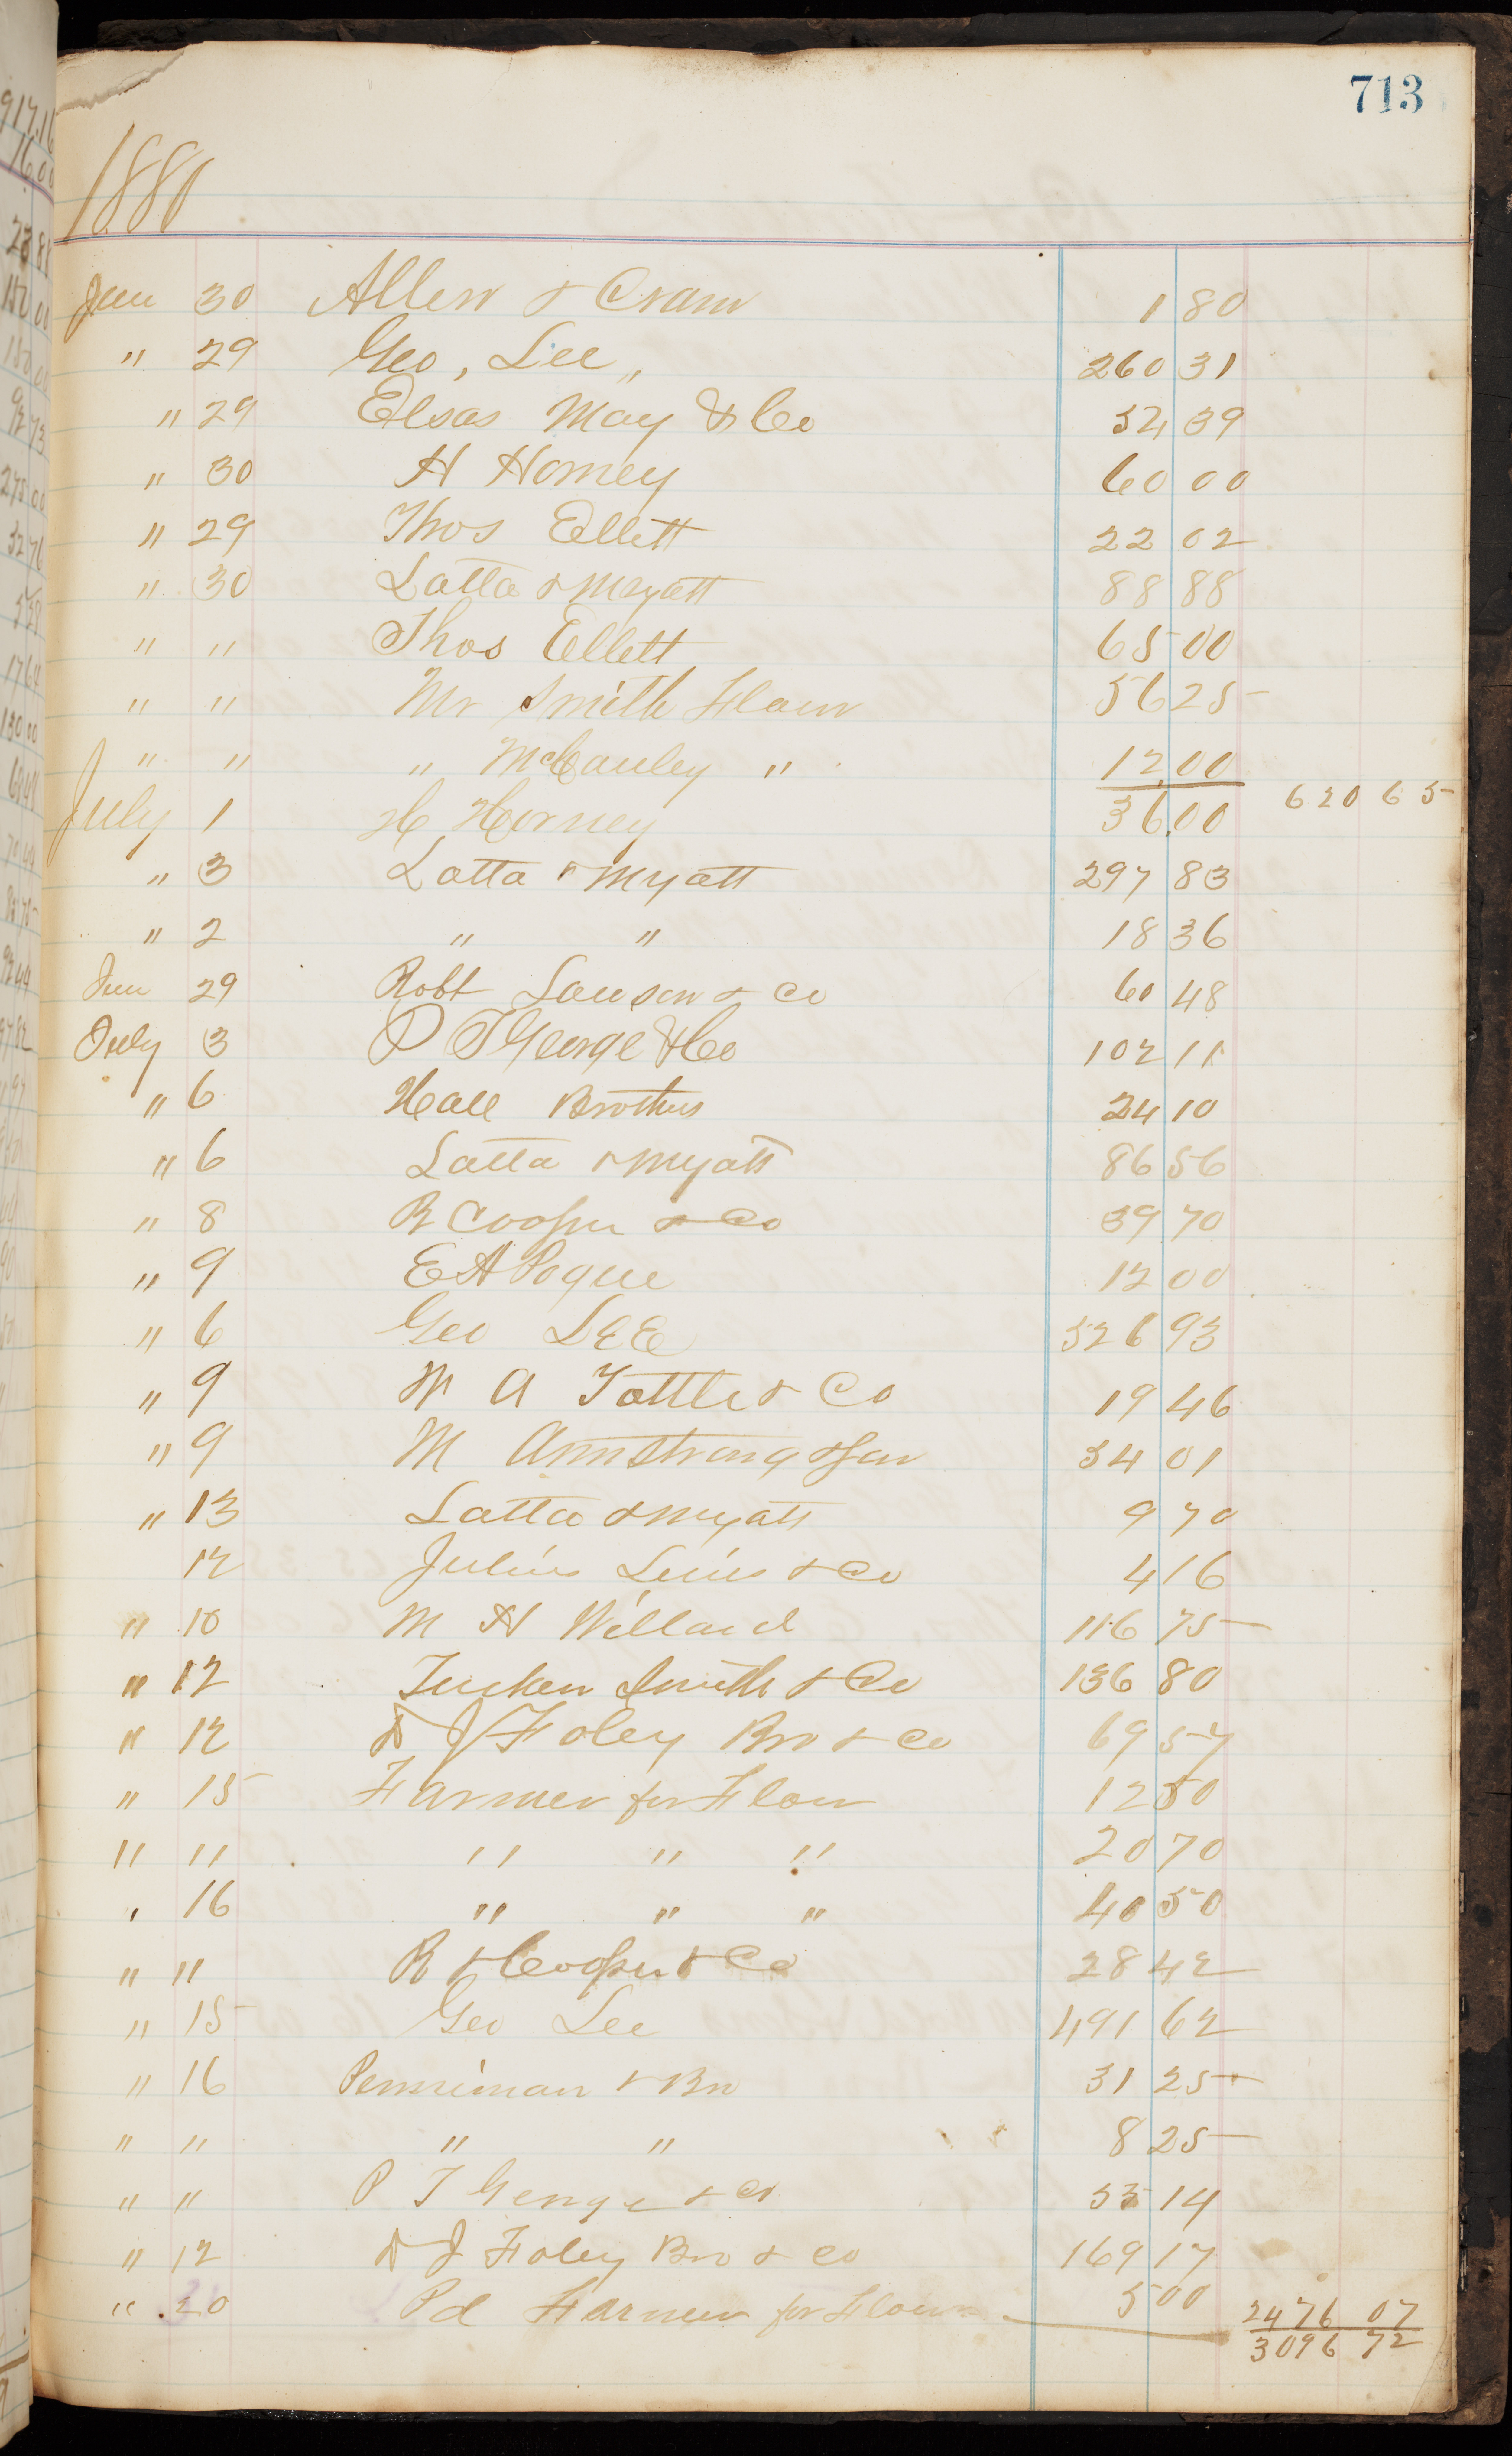 713
1880
Jun 30 Allen & Cram 1 80
" 29 Geo, Lee " 260 31
" 29 Elsas May & Co 54 39
" 30 H Horney 60 00
" 29 Thos Ellett 22 02
" 30 Latta & Myatt 88 88
" " Thos Ellett 65 00
" " Mr Smith Flour 56 25
" " " McCauley " 12.00
July 1 H Horney 36.00 620 65
" 3 Latta & Myatt 297 83
" 2 " " 18 36
Jun 29 Robt Lawson & Co 60 48
July 3 P T George & Co 102 11
" 6 Hall Brothers 24 10
" 6 Latta & Myatt 86 56
" 8 R Cooper & Co 39 70
" 9 E A Pogue 12 00
" 6 Geo LEE 526 93
" 9 W A Tottle & Co 19 46
" 9 M Armstrong & Son 54 01
" 13 Latta & Myatt 9 70
12 Julius Luis & Co 4 16
" 10 M H Willard 116 75
" 12 Tucker Smith & Co 136 80
" 12 D J Foley Bro & Co 69 57
" 15 Farmer for Flour 12 50
" " " " " 20 70
" 16 " " " 40 50
" " R & Cooper & Co 28 42
" 15 Geo Lee 491 62
" 16 Penniman & Bro 31 25
" " " " 8 25
" " P T George & Co 53 14
" 12 D J Foley Bro & Co 169 17
" 20 Pd Farmer for Flour 5 00 2476 07
3096 72